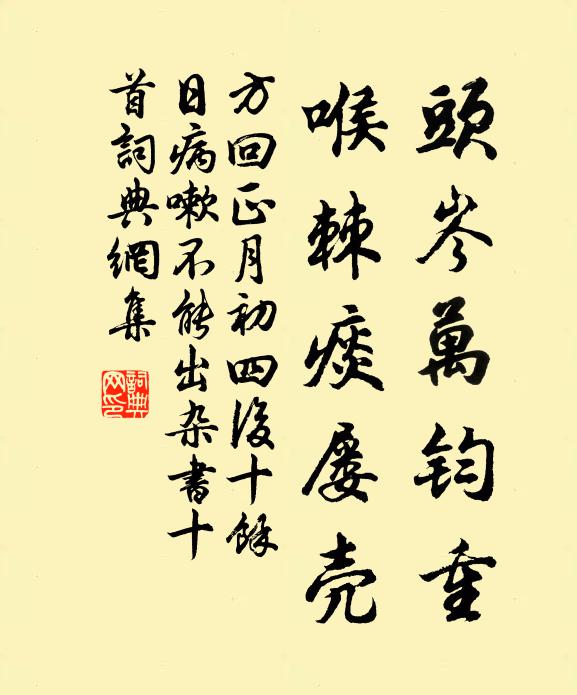 頭岑萬鈞重
喉棘痰屡壳
方回正月初四後十餘
日病嗽不能出杂書十
首詞典網集
詞典
网印